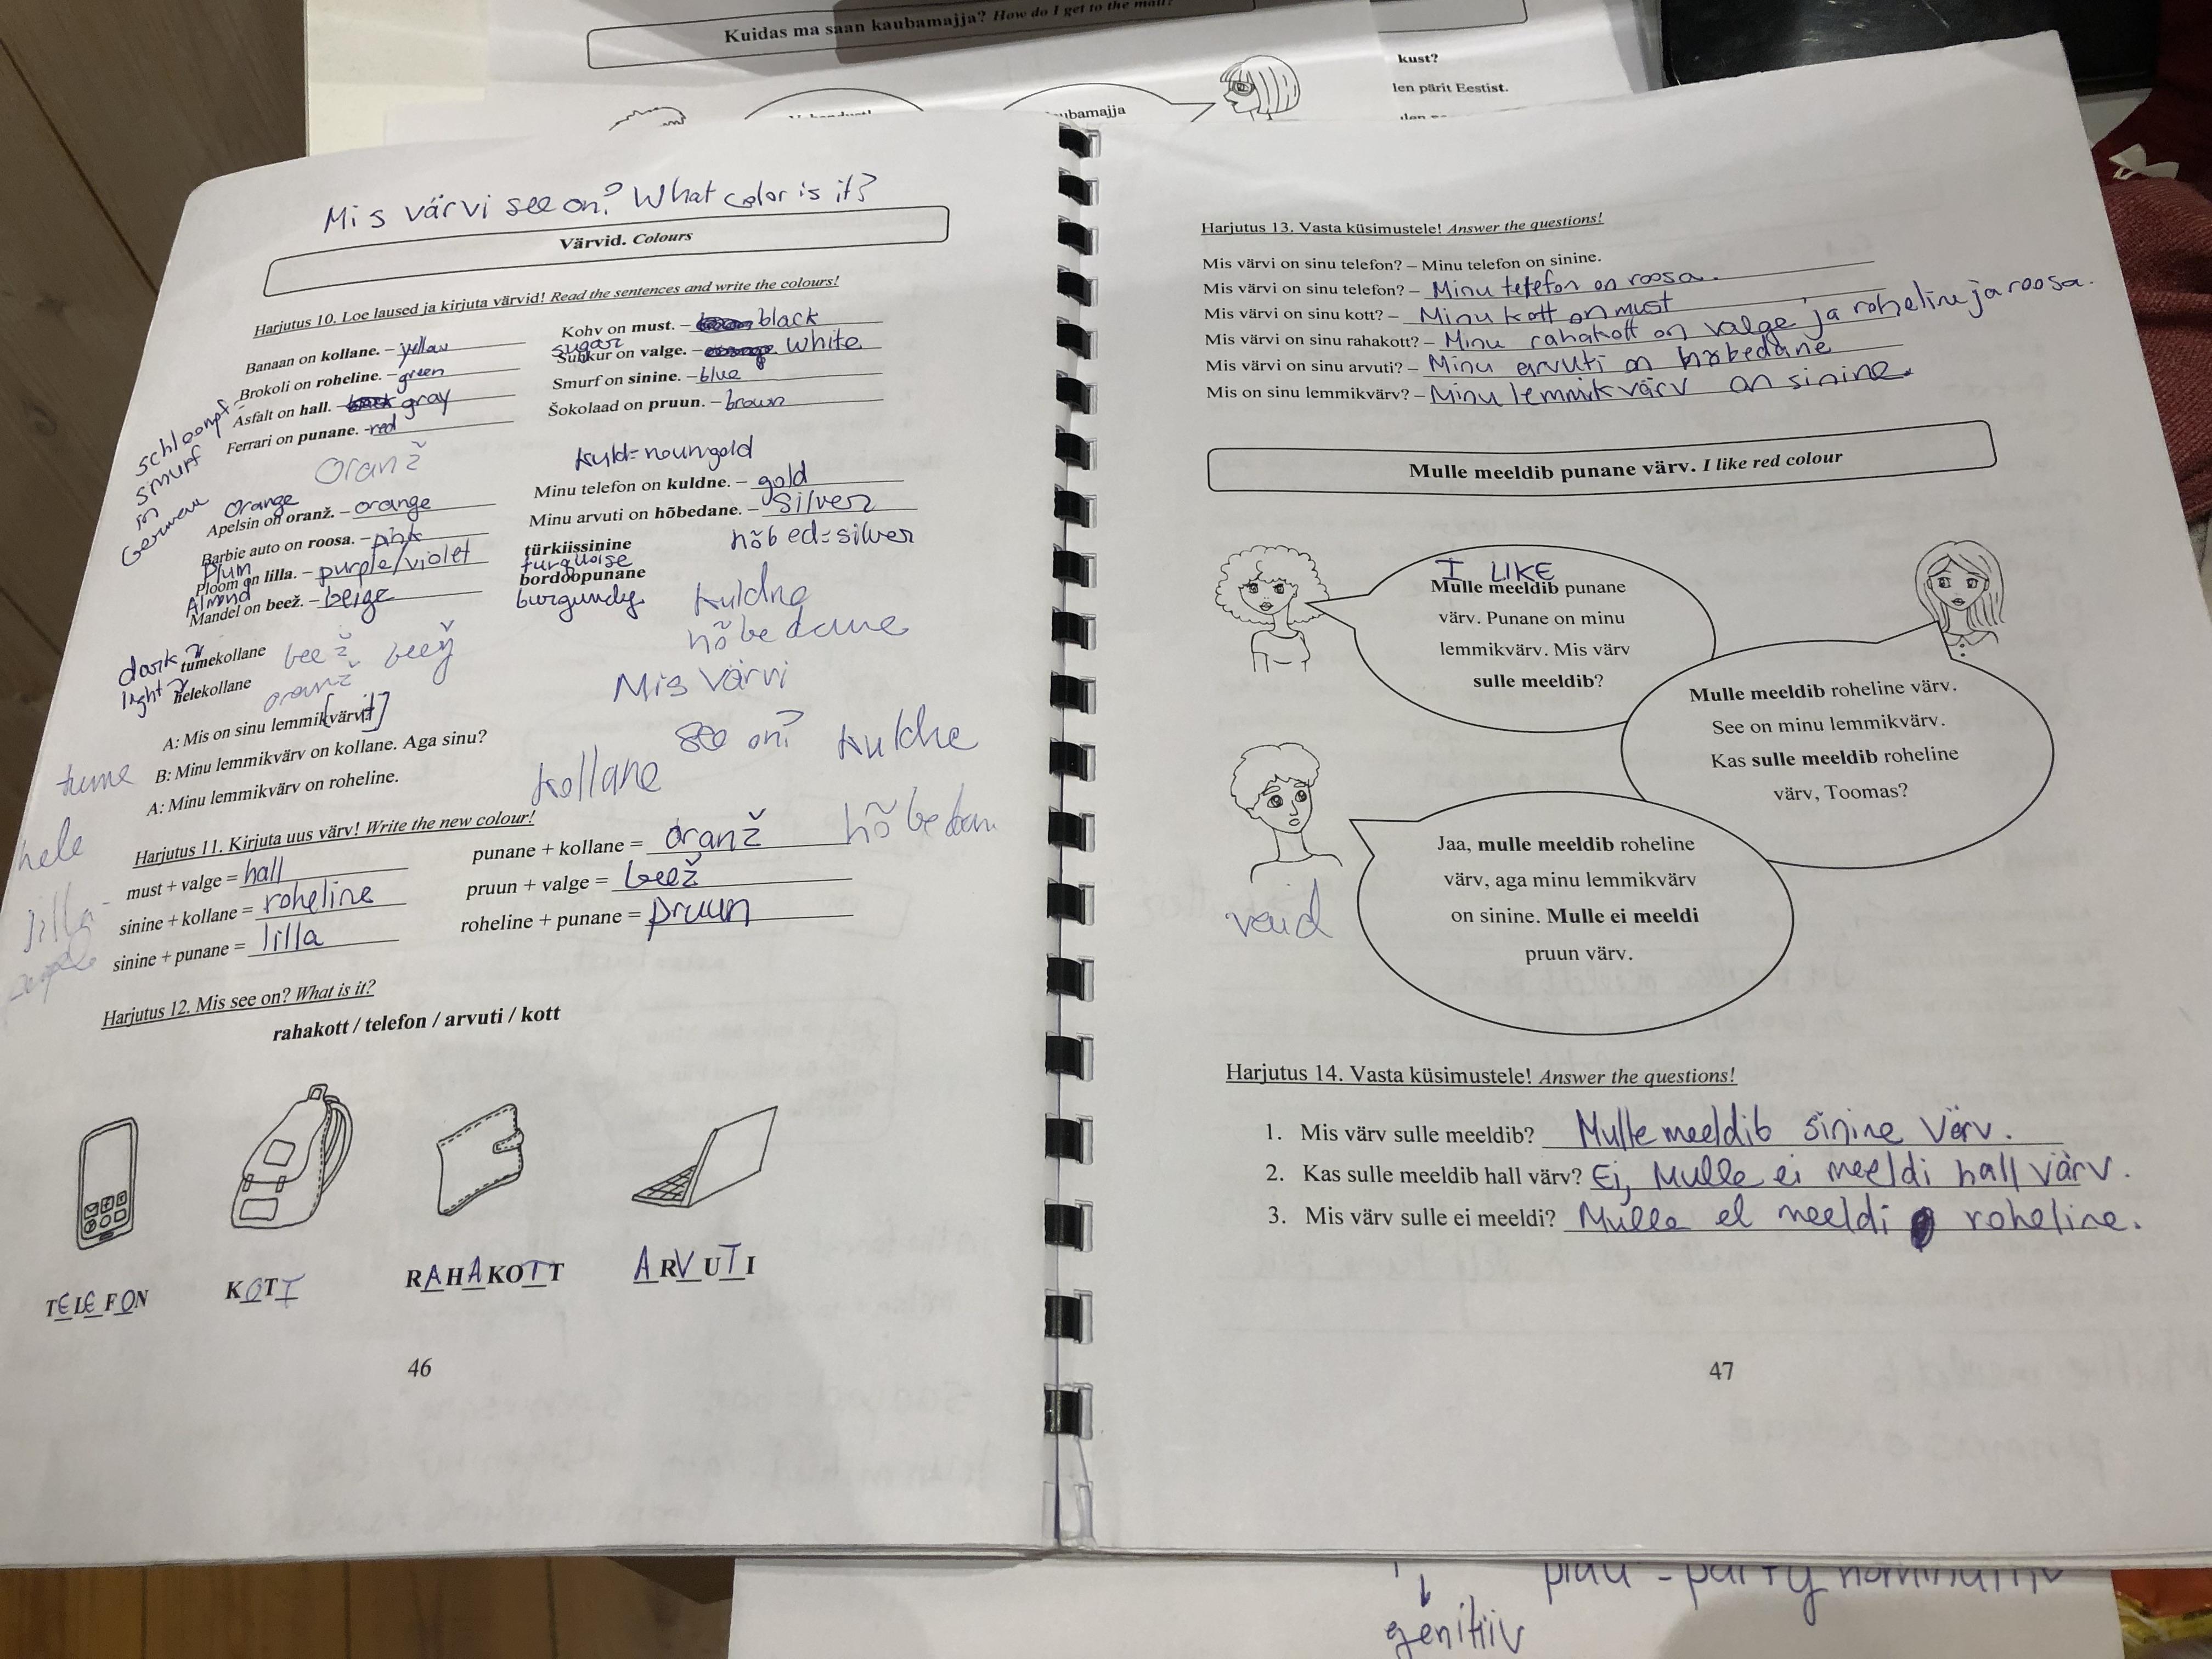 Kuidas ma saan kaubamajja? How do I get to the mall?
kust?
len pärit Eestist.
ubamajja
Mis värvi see on? What color is it?
Värvid. Colours
Harjutus 10. Loe laused ja kirjuta värvid! Read the sentences and write the colours!
Banaan on kollane. – yellow
Brokoli on roheline. – green
Asfalt on hall. gray
Ferrari on punane. - red
Kohv on must. – black
sugar
Suhkur on valge. – white
Smurf on sinine. – blue
Šokolaad on pruun. – brown
schloompf
smurf
in
German
oranž
kuld = noun gold
Orange
Apelsin on oranž. – orange
Barbie auto on roosa. – pink
Plum
Ploom on lilla. – purple/violet
Almond
Mandel on beež. – beige
Minu telefon on kuldne. – gold
Minu arvuti on hõbedane. – silver
hõbed=silver
türkiissinine
turquoise
bordoopunane
burgundy
kuldne
hõbedane
dark
tumekollane
light
helekollane
beež
oranž
Mis värvi
see on?
A: Mis on sinu lemmikvärv?
B: Minu lemmikvärv on kollane. Aga sinu?
A: Minu lemmikvärv on roheline.
tume
hele
lilla
kollane
kuldne
Harjutus 11. Kirjuta uus värv! Write the new colour!
must + valge = hall
sinine + kollane = roheline
sinine + punane = lilla
punane + kollane = oranž
pruun + valge = beež
roheline + punane = pruun
Harjutus 12. Mis see on? What is it?
rahakott / telefon / arvuti / kott
TELEFON
KOTT
RAHAKOTT
ARVUTI
46
Harjutus 13. Vasta küsimustele! Answer the questions!
Mis värvi on sinu telefon? – Minu telefon on sinine.
Mis värvi on sinu telefon? – Minu telefon on roosa.
Mis värvi on sinu kott? – Minu kott on must
Mis värvi on sinu rahakott? – Minu rahakott on valge ja roheline ja roosa.
Mis värvi on sinu arvuti? – Minu arvuti on hõbedane
Mis on sinu lemmikvärv? – Minu lemmikvärv on sinine.
Mulle meeldib punane värv. I like red colour
I LIKE
Mulle meeldib punane
värv. Punane on minu
lemmikvärv. Mis värv
sulle meeldib?
Mulle meeldib roheline värv.
See on minu lemmikvärv.
Kas sulle meeldib roheline
värv, Toomas?
Jaa, mulle meeldib roheline
värv, aga minu lemmikvärv
on sinine. Mulle ei meeldi
pruun värv.
Harjutus 14. Vasta küsimustele! Answer the questions!
1. Mis värv sulle meeldib? Mulle meeldib sinine värv.
2. Kas sulle meeldib hall värv? Ei, Mulle ei meeldi hall värv.
3. Mis värv sulle ei meeldi? Mulle ei meeldi roheline.
47
genitiiv